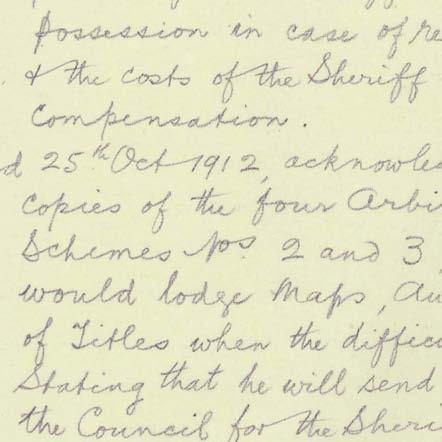 possession in case of re
& the costs of the Sheriff
Compensation.
d 25th Oct 1912, acknowled
copies of the four Arbi
Schemes Nos 2 and 3
would lodge Maps, Au
of Titles when the difficu
Stating that he will send
the Council for the Sheri